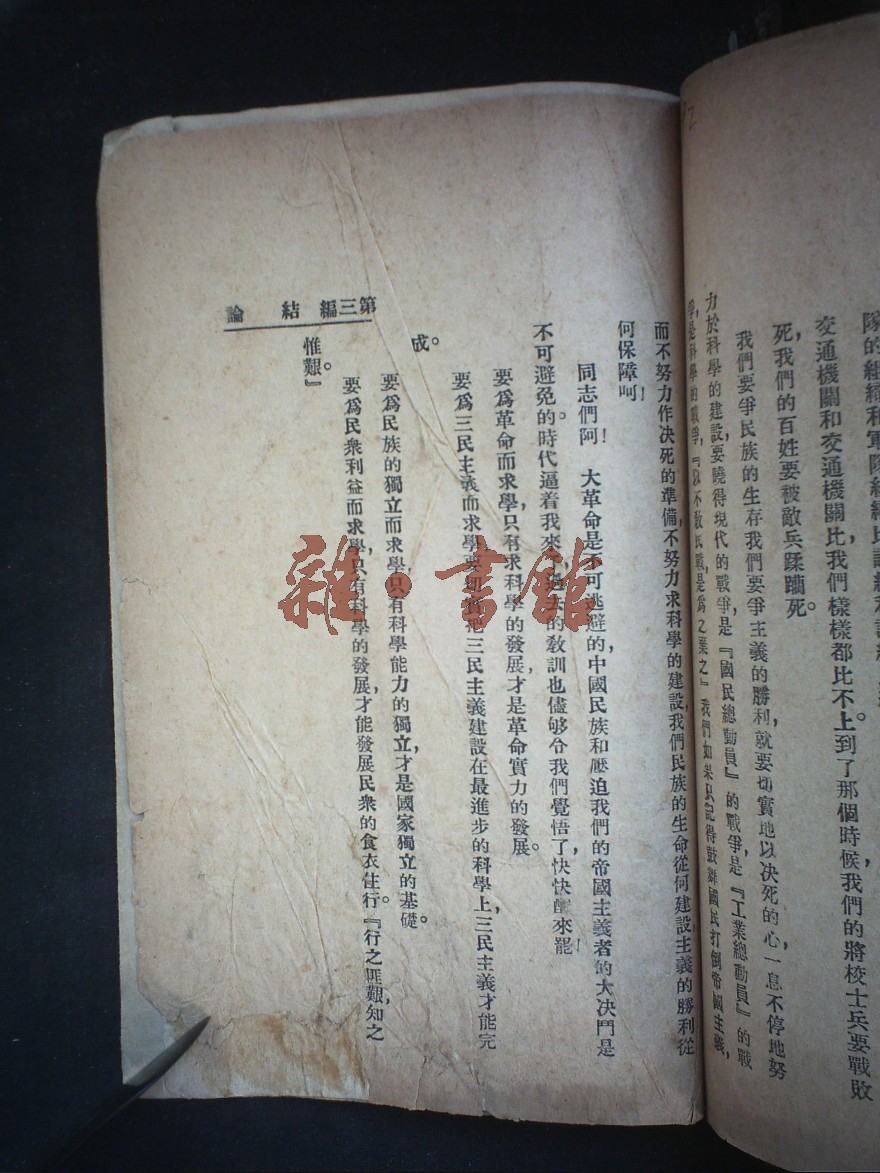 交通機關和交通機關比我們樣樣都比不上。到了那個時候我們的將校士兵要戰敗
死,我們的百姓要被敵兵蹂躪死。
我們要爭民族的生存我們要爭主義的勝利,就要切實地以决死的心,一息不停地努
力於科學的建設,要曉得現代的戰爭,是『國民總動員』的戰爭,是『工業總動員』的戰
爭,是科學的戰爭,『以不敎民戰,是爲之棄之』我們如果只記得鼓舞國民打倒帝國主義,
而不努力作决死的準備,不努力求科學的建設,我們民族的生命從何建設,主義的勝利從
何保障呵!
同志們阿!大革命是不可逃避的,中國民族和壓迫我們的帝國主義者的大决鬥是
不可避免的。時代逼着我來了,過去的敎訓也儘够令我們覺悟了,快快醒來罷!
要爲革命而求學,只有求科學的發展,才是革命實力的發展。
要爲三民主義而求學,要切實把三民主義建設在最進步的科學上,三民主義才能完
成。
要爲民族的獨立而求學,只有科學能力的獨立,才是國家獨立的基礎。
要爲民衆利益而求學,只有科學的發展,才能發展民衆的食衣住行。『行之匪艱,知之
惟艱。』
第三編 結 論
雜·書館